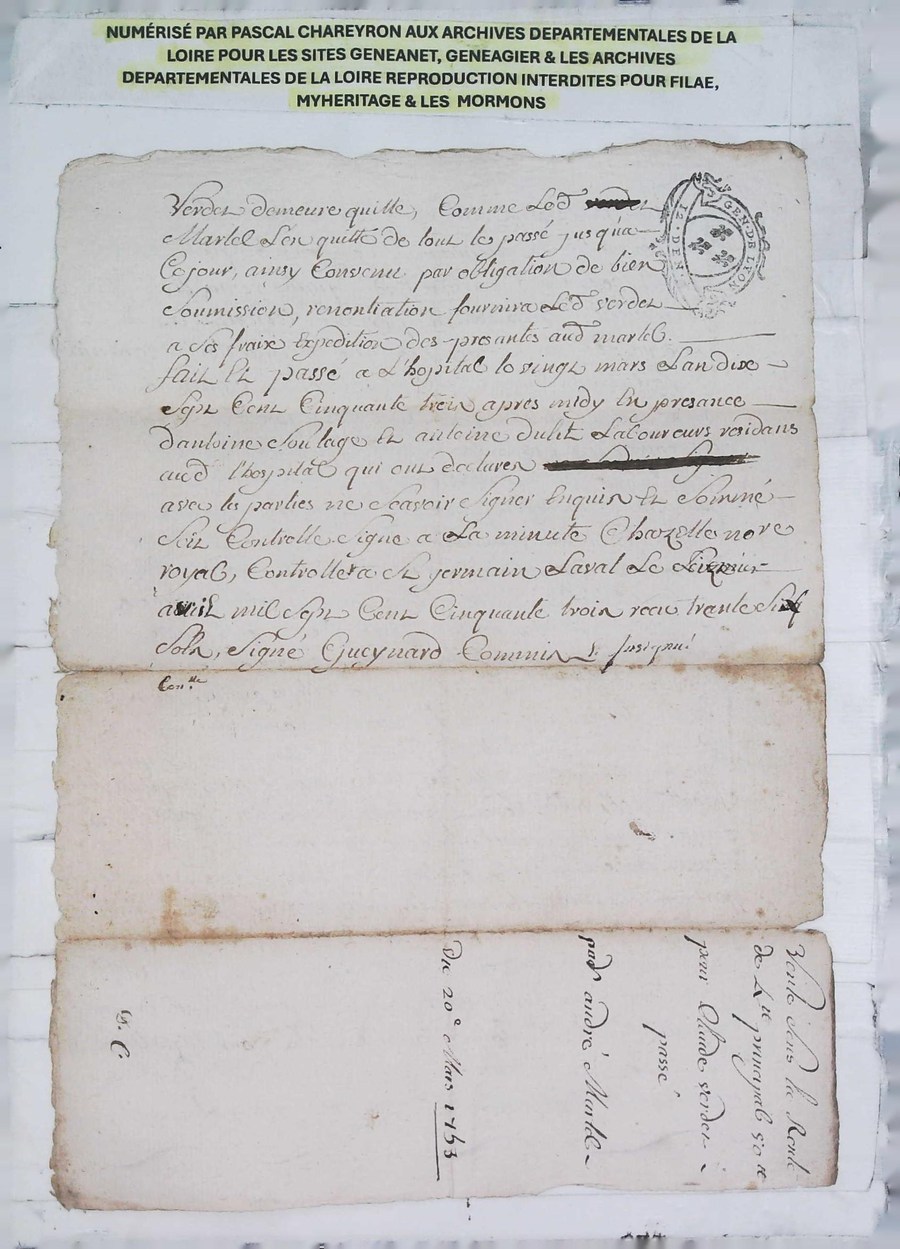 NUMÉRISÉ PAR PASCAL CHAREYRON AUX ARCHIVES DEPARTEMENTALES DE LA
LOIRE POUR LES SITES GENEANET, GENEAGIER & LES ARCHIVES
DEPARTEMENTALES DE LA LOIRE REPRODUCTION INTERDITES POUR FILAE,
MYHERITAGE & LES MORMONS
GEN·DE LYON
Verder demeure quitte, Comme Led
Martel L'en quitte de tout le passé jusqua
Ce jour, ainsy Convenu par obligation de bien
Soumission, renontiation fournira Led verder
a Ses fraix Expedition des presantes aud martel.
fait Et passé a L'hopital le vingt mars Lan dix
Sept Cent Cinquante trois apres midy En presance
Dantoine Soulage Et antoine Laboureurs residans
aud l'hospital qui ont declares
avec les parties ne Scavoir Signer Enquis Et Sommé
Soit Controllé Signé a La minute Chazelle nore
royal, Controllé a St germain Laval Le
avril mil Sept Cent Cinquante trois recu trente Six
Solz, Signé Gueynard Commis
Con.lle
Vente sous la Rente
de principal 50
pour Claude verder
passé
par andré Martel
Du 20e Mars 1753
D. C.